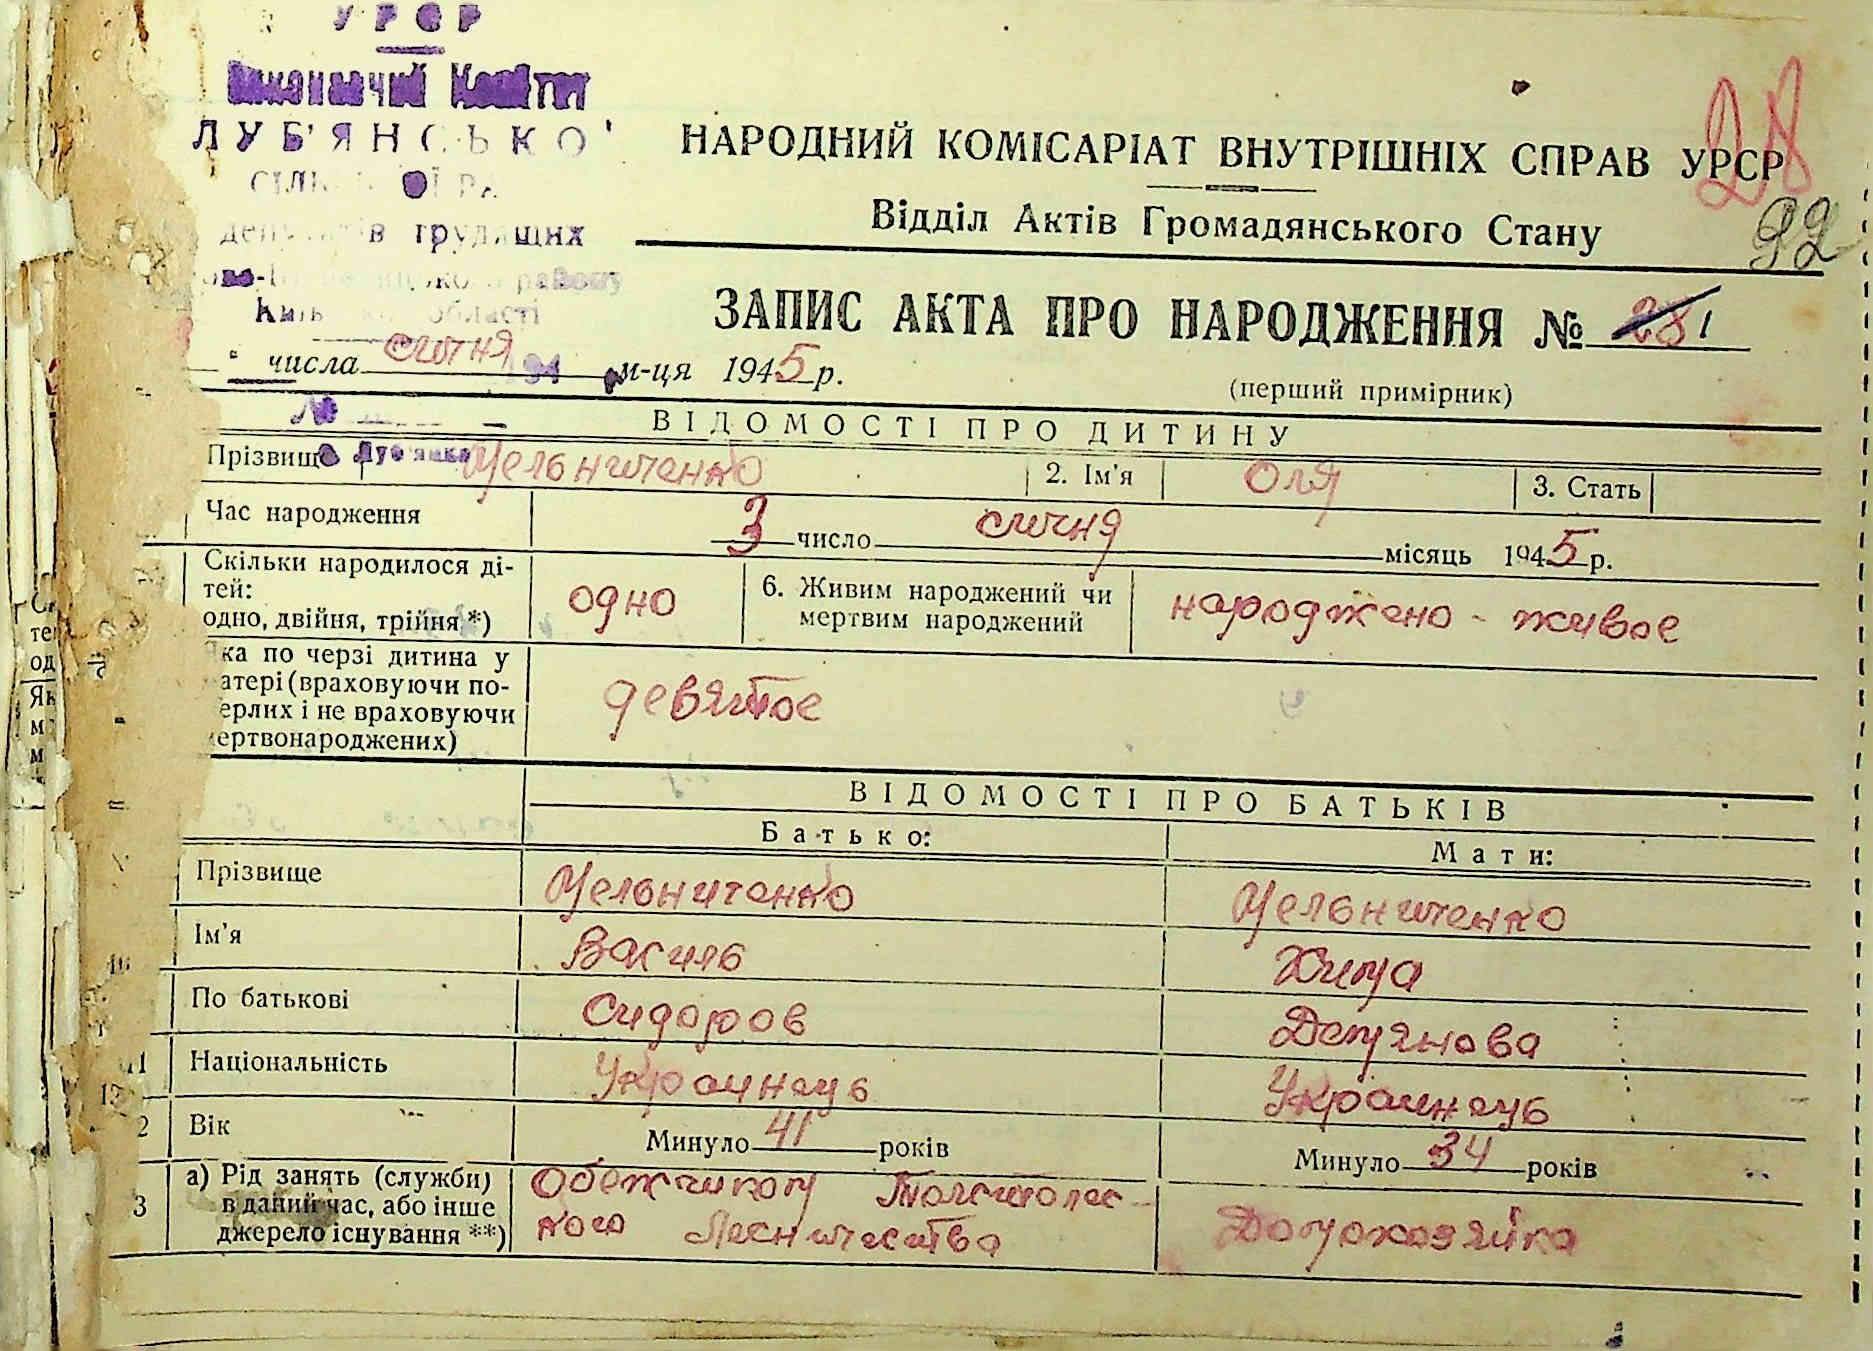 УРСР
Виконавчий Комітет
ЛУБ'ЯНСЬКО
депутатів трудящих
області
28
НАРОДНИЙ КОМІСАРІАТ ВНУТРІШНІХ СПРАВ УРСР
92
Відділ Актів Громадянського Стану
ЗАПИС АКТА ПРО НАРОДЖЕННЯ № 28 1
числа січня м-ця 1945 р.
(перший примірник)
№
ВІДОМОСТІ ПРО ДИТИНУ
Прізвище Мельниченко 2. Ім'я Оля 3. Стать
Час народження 3 число січня місяць 1945 р.
Скільки народилося ді-
тей:
одно, двійня, трійня *) одно 6. Живим народжений чи
мертвим народжений народжено - живое
ка по черзі дитина у
атері (враховуючи по-
ерлих і не враховуючи
ертвонароджених) девятое
ВІДОМОСТІ ПРО БАТЬКІВ
Батько: Мати:
Прізвище Мельниченко Мельниченко
Ім'я Василь Хима
По батькові Сидоров Демянова
11 Національність Украинець Украинець
2 Вік Минуло 41 років Минуло 34 років
3 а) Рід занять (служби)
в даний час, або інше
джерело існування **) Обежчиком Толстолес-
кого Лесничества Домохозяйка